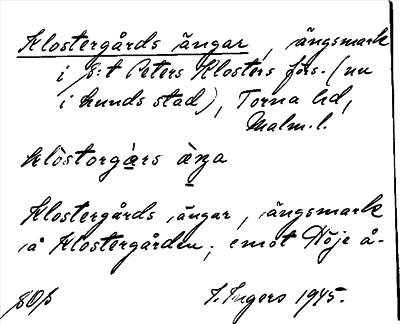 Klostergårds ängar, ängsmark
i S:t Peters Klosters förs. (nu
i Lunds stad), Torna hd,
Malm. l.
klòstorgàrs äŋa
Klostergårds ängar, ängsmark
å Klostergården; emot Höje å.
I. Ingers 1945.